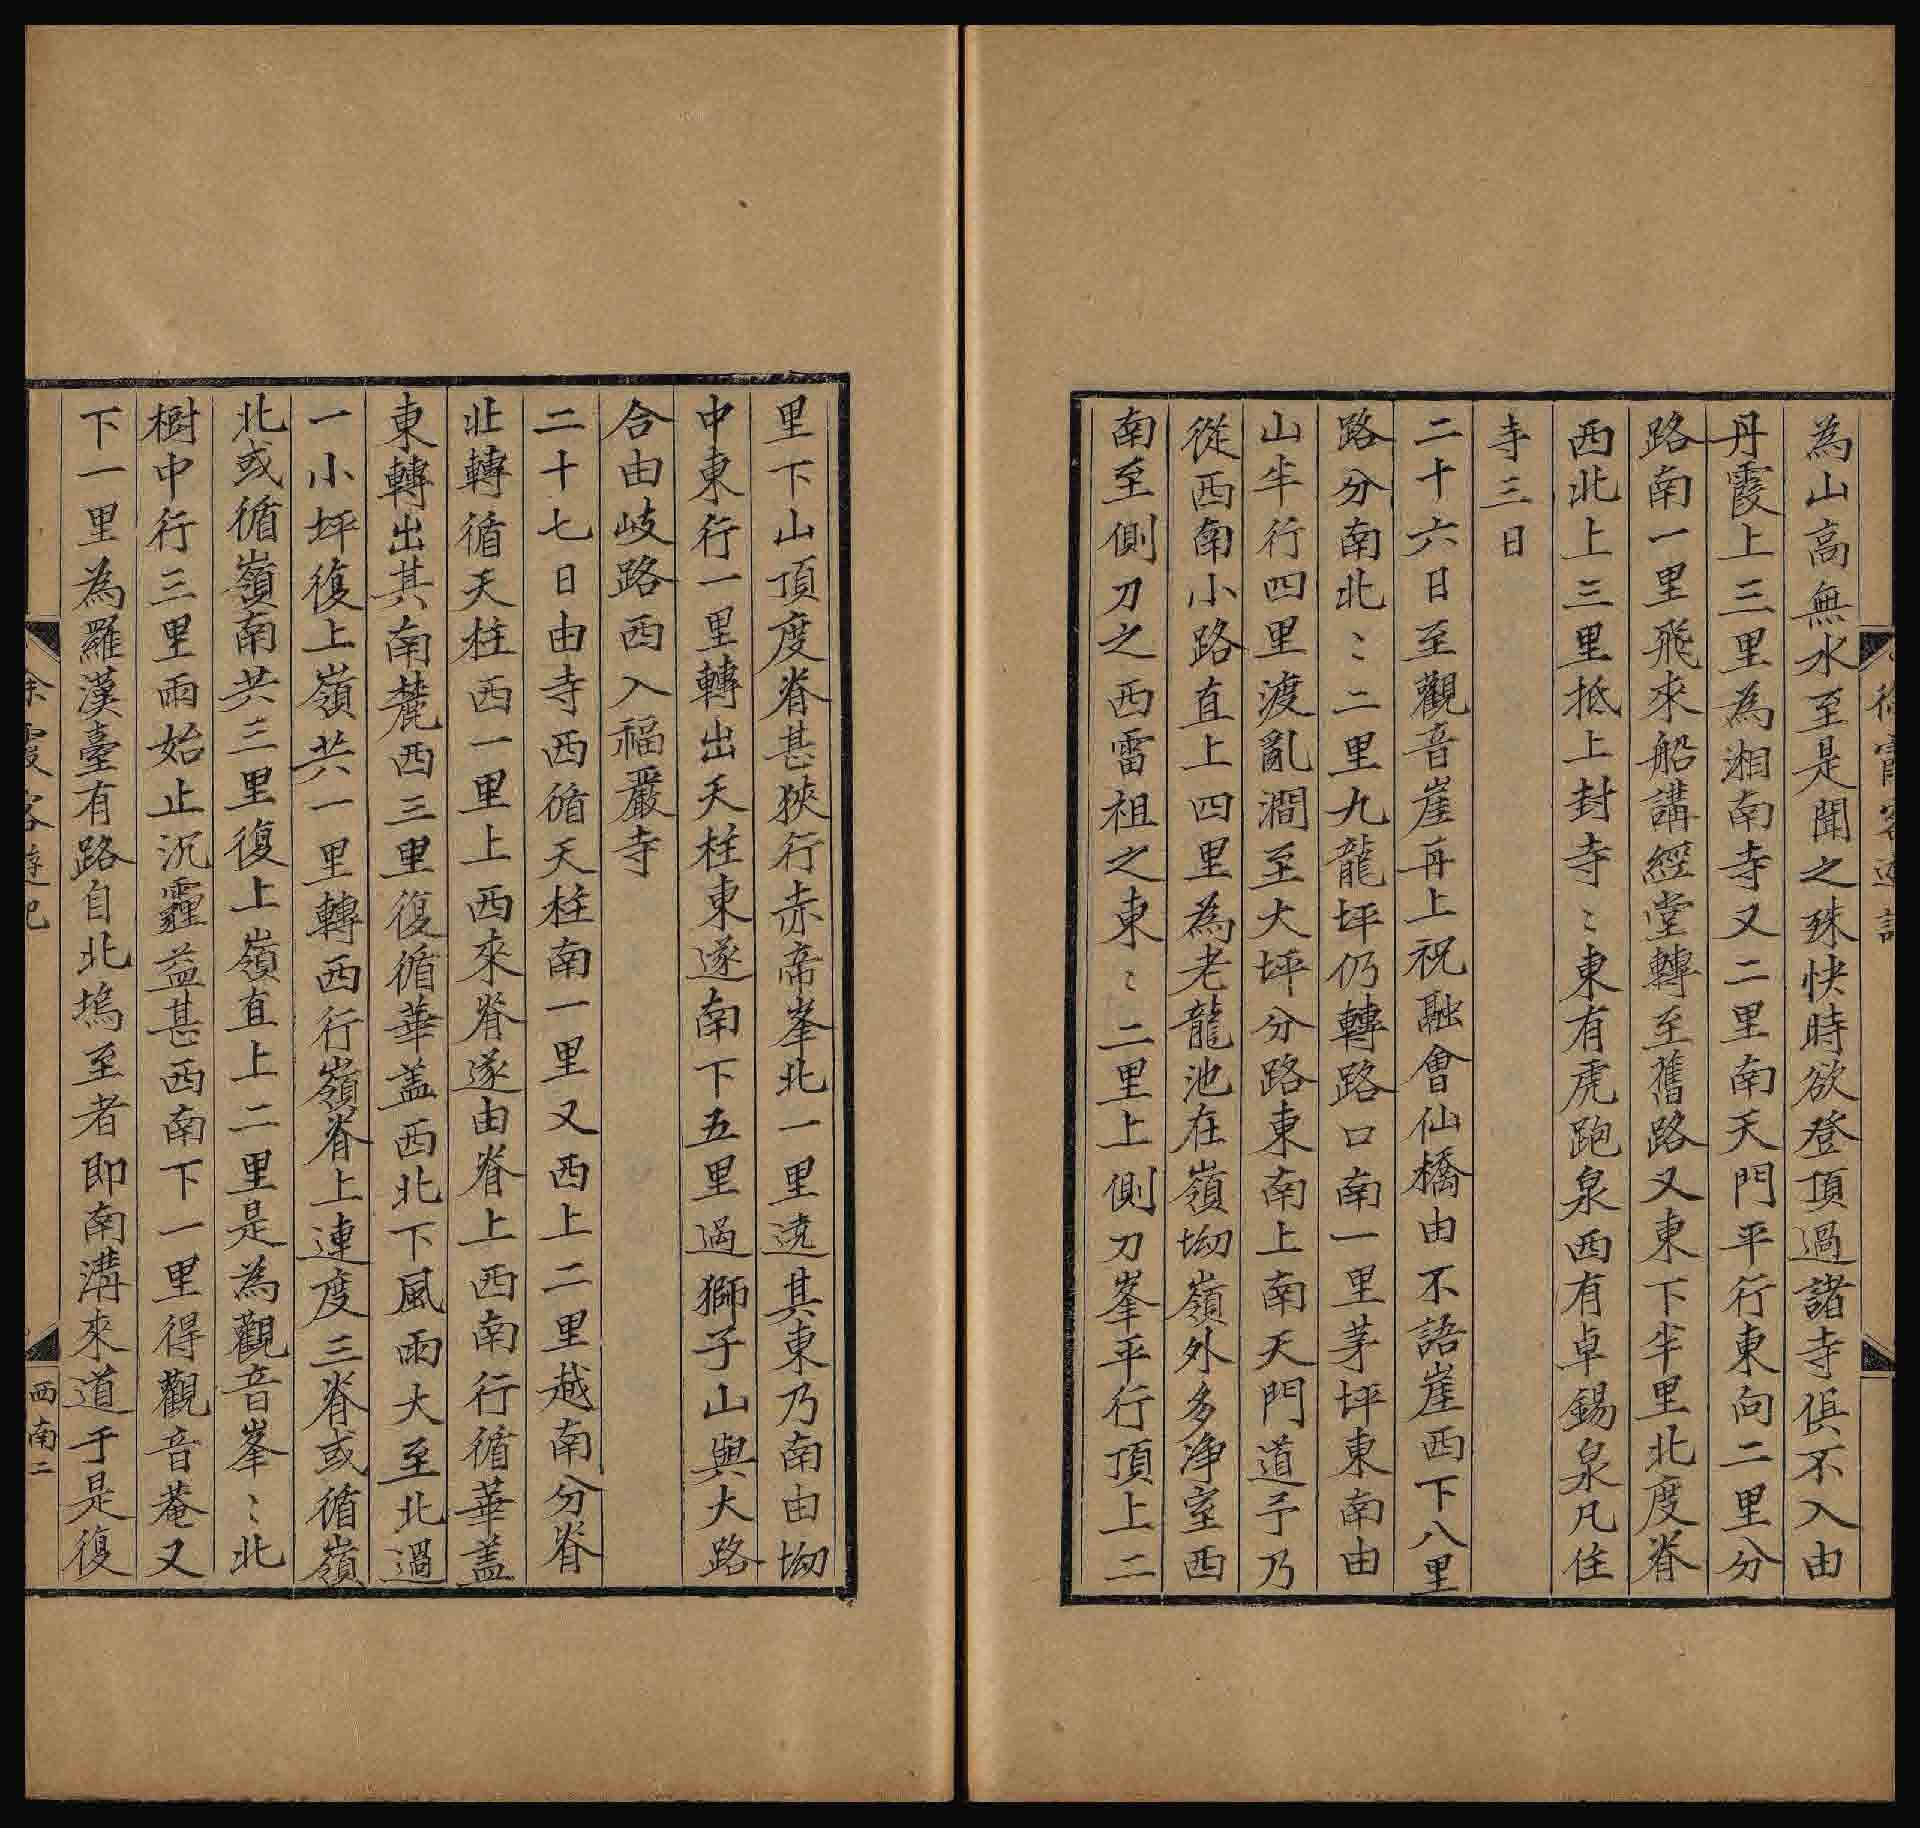 為山高無水至是聞之殊快時欲登頂過諸寺俱不入由
丹霞上三里為湘南寺又二里南天門平行東向二里分
路南一里飛來船講經堂轉至舊路又東下半里北度脊
西北上三里抵上封寺〻東有虎跑泉西有卓錫泉凡住
寺三日
二十六日至觀音崖再上祝融會仙橋由不語崖西下八里
路分南北〻二里九龍坪仍轉路口南一里茅坪東南由
山半行四里渡亂澗至大坪分路東南上南天門道予乃
從西南小路直上四里為老龍池在嶺坳嶺外多淨室西
南至側刀之西雷祖之東〻二里上側刀峯平行頂上二
里下山頂度脊甚狹行赤帝峯北一里遶其東乃南由坳
中東行一里轉出天柱東遂南下五里過獅子山與大路
合由岐路西入福嚴寺
二十七日由寺西循天柱南一里又西上二里越南分脊
北轉循天柱西一里上西來脊遂由脊上西南行循華盖
東轉出其南麓西三里復循華盖西北下風雨大至北過
一小坪復上嶺共一里轉西行嶺脊上連度三脊或循嶺
北或循嶺南共三里復上嶺直上二里是為觀音峯〻北
樹中行三里雨始止沉霾益甚西南下一里得觀音菴又
下一里為羅漢臺有路自北塢至者即南溝來道于是復
徐霞客遊記
西南二